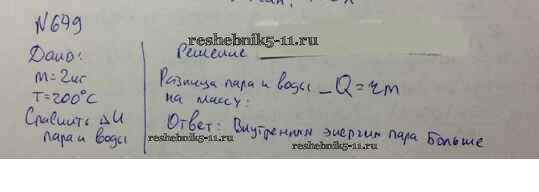 №649
reshebnik5-11.ru
Дано:
m=2кг
T=200°C
Сравнить ΔU
пара и воды
Решение
Разница пара и воды – Q=rm
на массу:
reshebnik5-11.ru
Ответ: Внутренняя энергия пара больше
reshebnik5-11.ru